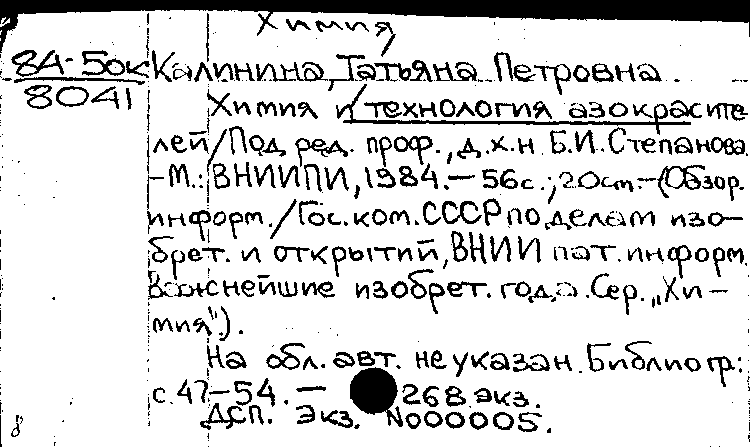 Химия
84-50к Калинина, Татьяна Петровна.
8041 Химия и/технология азокрасите
лей/Под ред. проф., д.х.н Б.И.Степанова.
-М.: ВНИИПИ, 1984.-56с.; 20см.-(Обзор.
информ./Гос.ком.СССР по делам изо-
брет. и открытий, ВНИИ пат.информ.
Важнейшие изобрет. года. Сер. „Хи-
мия").
На обл. авт. не указан. Библиогр.:
с.47-54. - 268 экз.
ДСП. Экз. N000005.
8